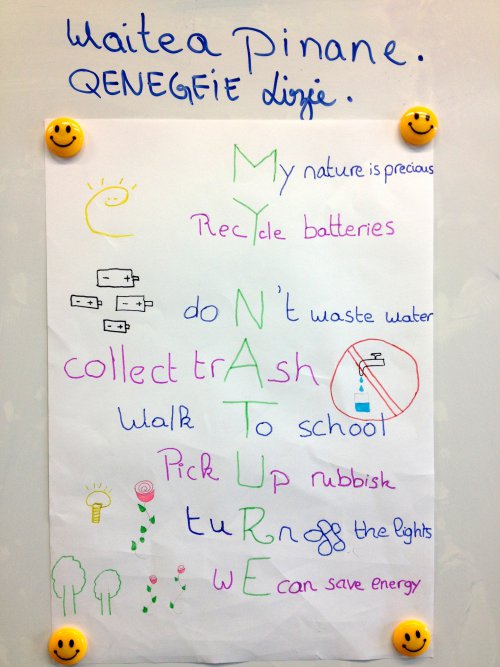 Waitea Pinane.
QENEGEIE Lizie.
My nature is precious
RecYcle batteries
doN't waste water
collect trAsh
Walk To school
Pick Up rubbisk
tuRn off the lights
wE can save energy